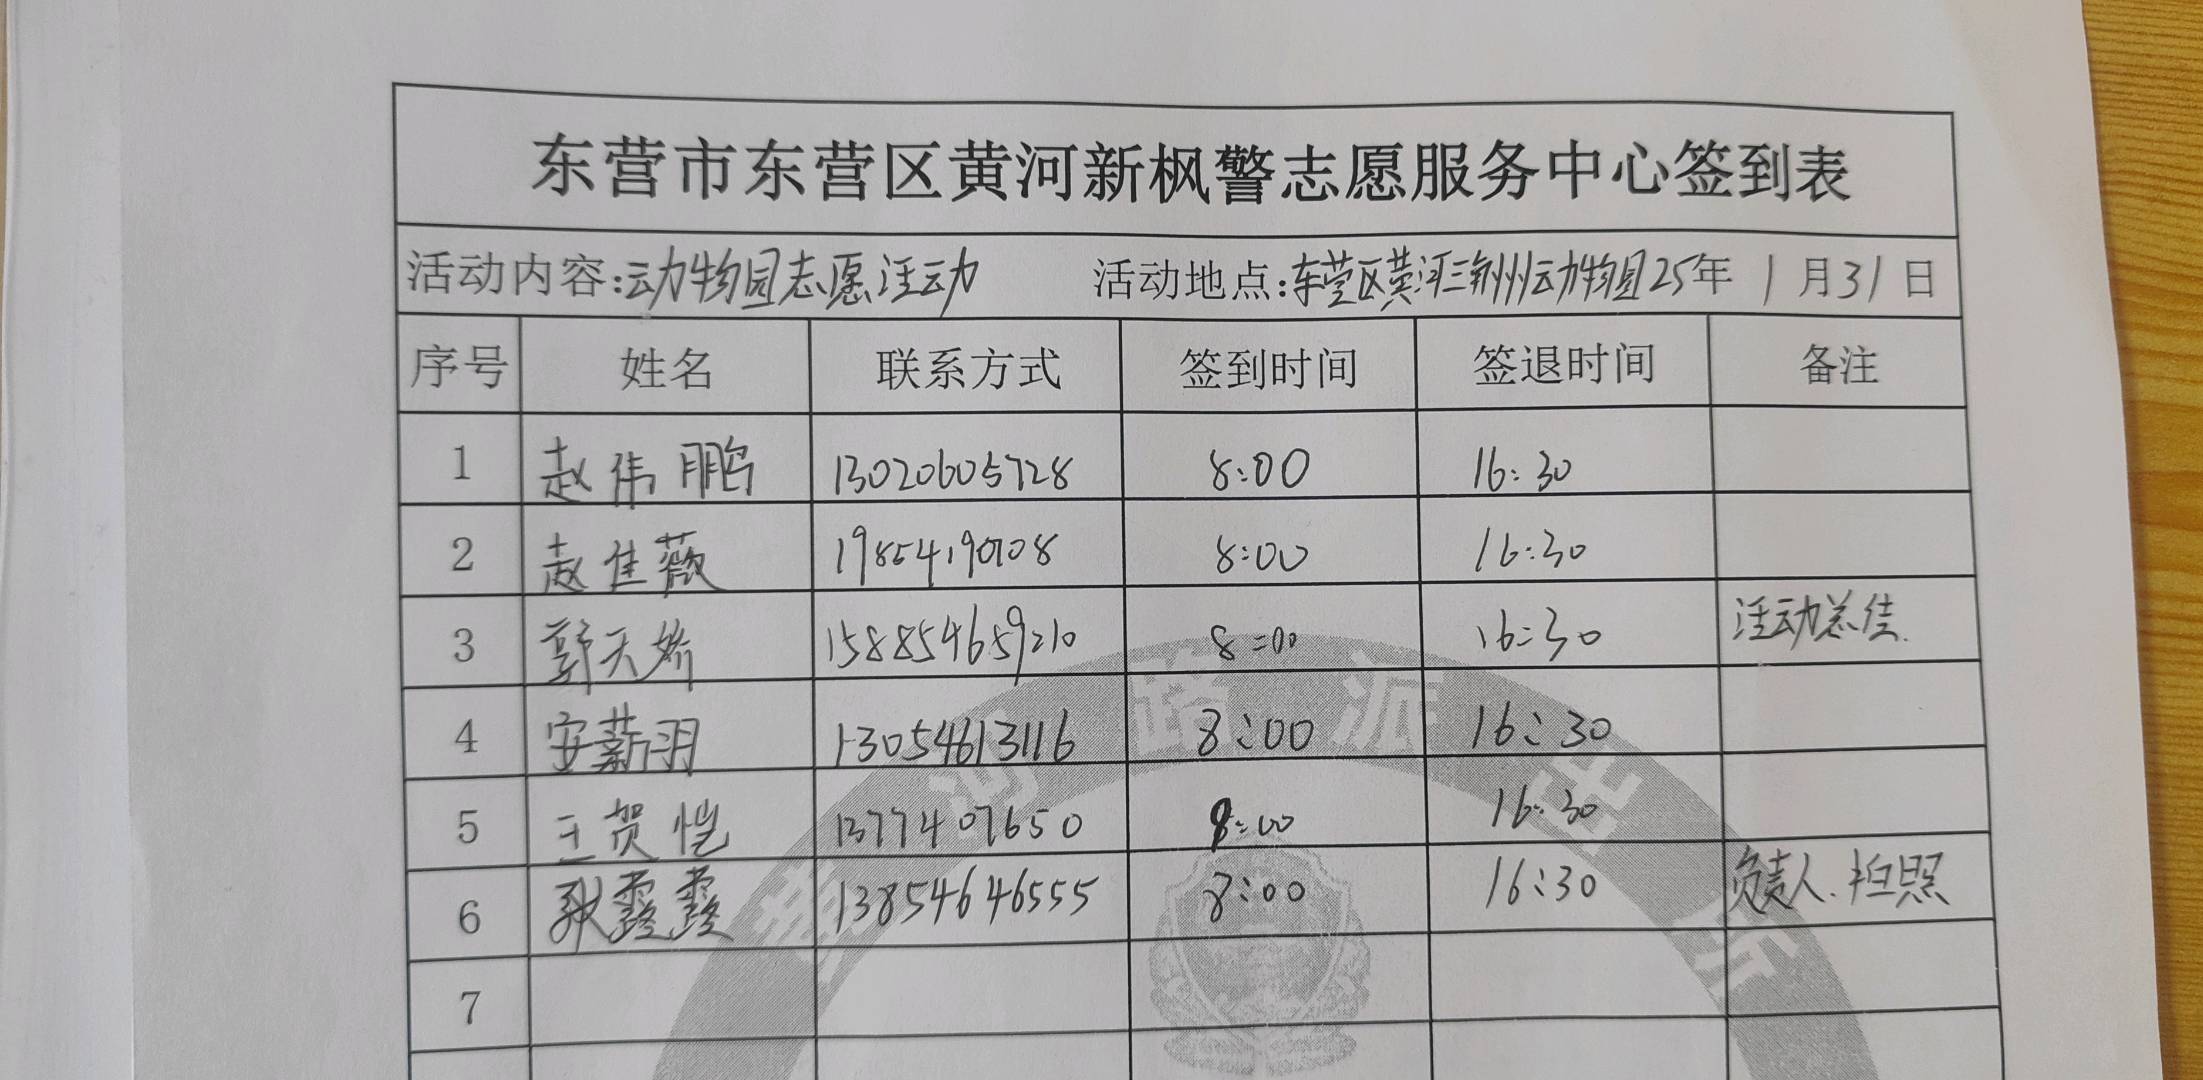 东营市东营区黄河新枫警志愿服务中心签到表
活动内容:动物园志愿活动 活动地点:东营区黄河三角洲动物园25年 1月31日
序号 姓名 联系方式 签到时间 签退时间 备注
1 赵伟鹏 13020605728 8:00 16:30
2 赵佳薇 19854190108 8:00 16:30
3 郭天娇 158854659210 8:00 16:30 活动总结.
4 安薪羽 13054613116 8:00 16:30
5 王贺恺 1377407650 8:00 16:30
6 耿露露 13854646555 8:00 16:30 负责人.拍照
7
河路派出所